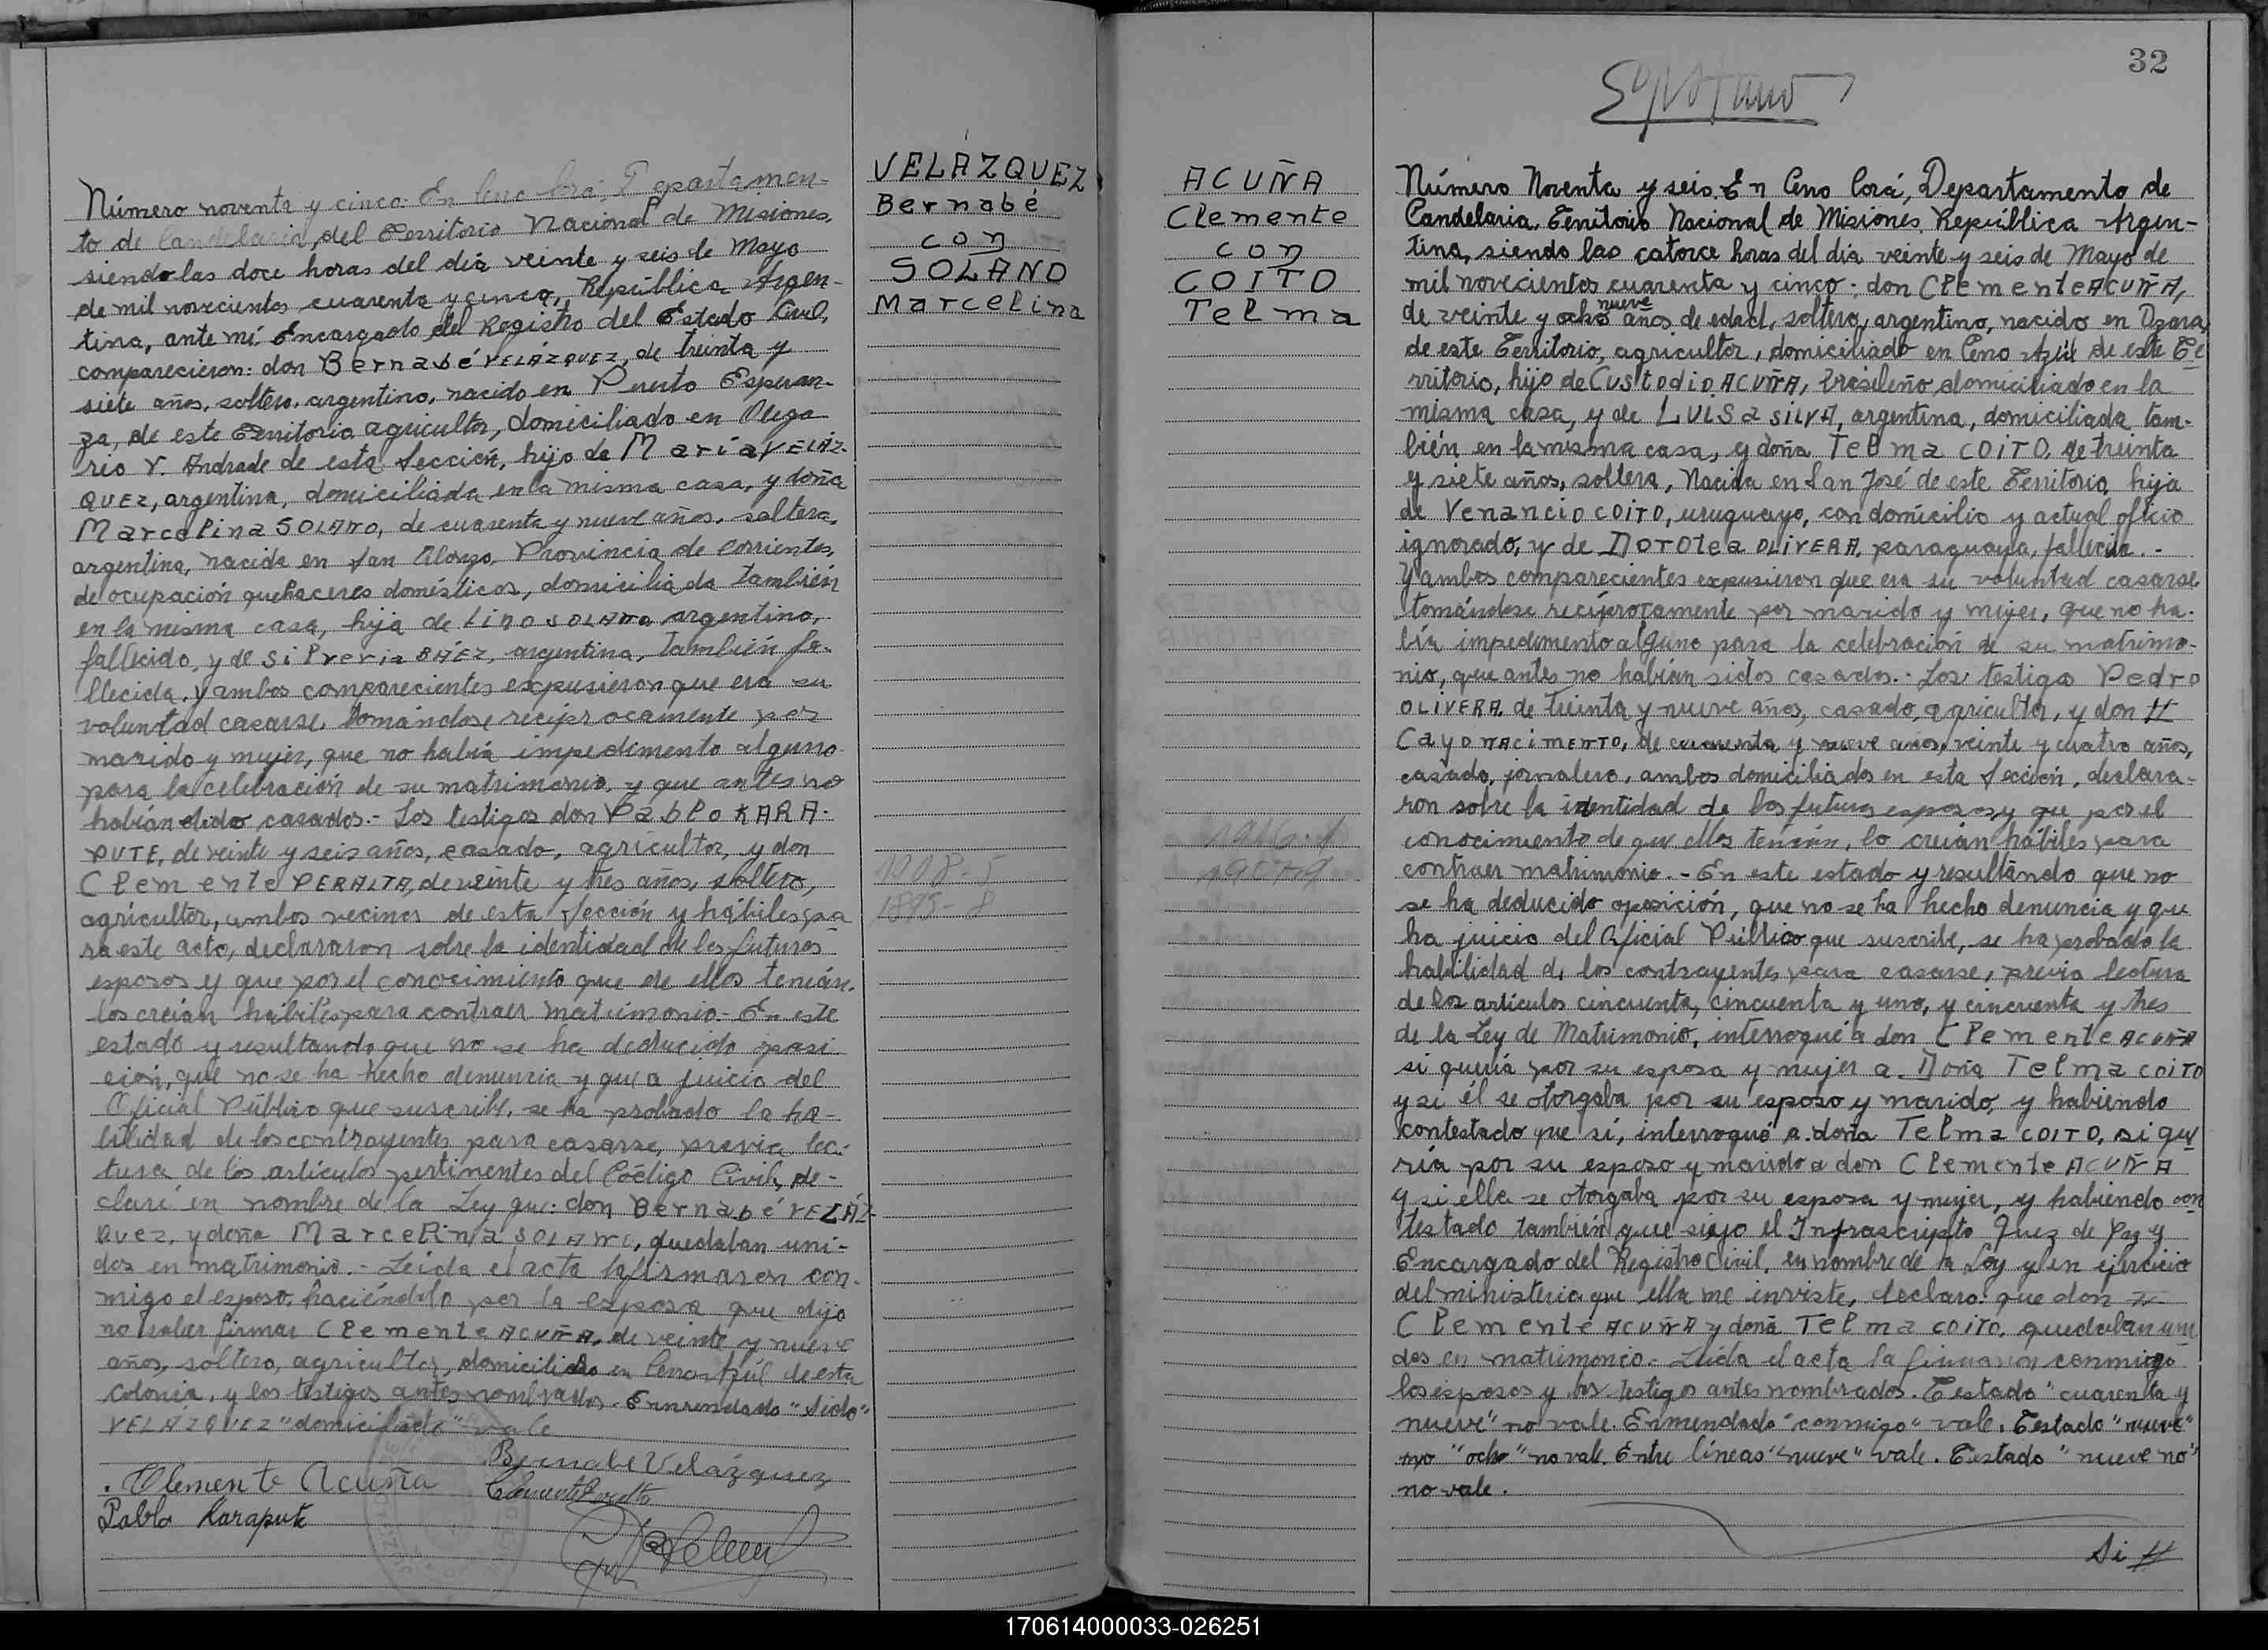 Número noventa y cinco. En Ceno Corá, Departamen-
to de Candelaria, del Territorio Nacional de Misiones,
siendo las doce horas del día veinte y seis de Mayo
de mil novecientos cuarenta y cinco, República Argen-
tina, ante mí Encargado del Registro del Estado Civil,
comparecieron: don Bernabé VELÁZQUEZ, de treinta y
siete años, soltero, argentino, nacido en Puerto Esperan-
za, de este Territorio agricultor, domiciliado en Olega
rio V. Andrade de esta Sección, hijo de María VELÁZ-
QUEZ, argentina, domiciliada en la misma casa, y doña
Marcelina SOLANO, de cuarenta y nueve años, soltera,
argentina, nacida en San Alonso, Provincia de Corrientes,
de ocupación quehaceres domésticos, domiciliada también
en la misma casa, hija de Lino SOLANO argentino,
fallecido, y de Silveria BÁEZ, argentina, también fa-
llecida. y ambos comparecientes expusieron que era su
voluntad casarse, tomándose recíprocamente por
marido y mujer, que no había impedimento alguno
para la celebración de su matrimonio, y que antes no
habían sido casados.- Los testigos don Pablo KARA-
PUTE, de veinte y seis años, casado, agricultor, y don
Clemente PERALTA, de veinte y tres años, soltero,
agricultor, ambos vecinos de esta Sección y hábiles pa
ra este acto, declararon sobre la identidad de los futuros
esposos y que por el conocimiento que de ellos tenían,
los creían hábiles para contraer matrimonio.- En este
estado y resultando que no se ha deducido oposi
ción, que no se ha hecho denuncia y que a juicio del
Oficial Público que suscribe, se ha probado la ha-
bilidad de los contrayentes para casarse, previa lec-
tura de los artículos pertinentes del Código Civil, de-
claré en nombre de la Ley que: don Bernabé VELÁZ-
QUEZ, y doña Marcelina SOLANO, quedaban uni-
dos en matrimonio.- Leída el acta la firmaron con-
migo el esposo, haciéndolo por la esposa que dijo
no saber firmar Clemente ACUÑA, de veinte y nueve
años, soltero, agricultor, domiciliado en Ceno Azúl de esta
Colonia, y los testigos antes nombrados. Enmendado "sido"
VELÁZQUEZ "domiciliado" vale
Bernabé Velázquez
Clemente Acuña
Clemente Peralta
Pablo Karapute
VELÁZQUEZ
Bernabé
con
SOLANO
Marcelina
1908-5
1895-8
ACUÑA
Clemente
con
COITO
Telma
1916-1
32
Número Noventa y seis. En Ceno Corá, Departamento de
Candelaria, Territorio Nacional de Misiones, República Argen-
tina, siendo las catorce horas del día veinte y seis de Mayo de
mil novecientos cuarenta y cinco; don Clemente ACUÑA,
nueve
de veinte y ocho años de edad, soltero, argentino, nacido en Ozara,
de este Territorio, agricultor, domiciliado en Ceno Azúl de este Te
rritorio, hijo de Custodio ACUÑA, brasileño, domiciliado en la
misma casa, y de LUISa SILVA, argentina, domiciliada tam-
bién en la misma casa, y doña Telma COITO, de treinta
y siete años, soltera, Nacida en San José de este Territorio, hija
de Venancio COITO, uruguayo, con domicilio y actual oficio
ignorado, y de Dorotea OLIVERA, paraguaya, fallecida.-
Y ambos comparecientes expusieron que era su voluntad casarse
tomándose recíprocamente por marido y mujer, que no ha-
bía impedimento alguno para la celebración de su matrimo-
nio, que antes no habían sidos casados.- Los testigos Pedro
OLIVERA, de treinta y nueve años, casado, agricultor, y don
Cayo NACIMENTO, de cuarenta y nueve años, veinte y cuatro años,
casado, jornalero, ambos domiciliados en esta Sección, declara-
ron sobre la identidad de los futuros esposos y que por el
conocimiento de que ellos tenían, lo creían hábiles para
contraer matrimonio.- En este estado y resultando que no
se ha deducido oposición, que no se ha hecho denuncia y que
ha juicio del Oficial Público que suscribe, se ha probado la
habilidad de los contrayentes para casarse, previa lectura
de los artículos cincuenta, cincuenta y uno, y cincuenta y tres
de la Ley de Matrimonio, interrogué a don Clemente ACUÑA
si quería por su esposa y mujer a Doña Telma COITO
y si él se otorgaba por su esposo y marido, y habiendo
contestado que sí, interrogué a doña Telma COITO, si que
ría por su esposo y marido a don Clemente ACUÑA
y si ella se otorgaba por su esposa y mujer, y habiendo con
testado también que si yo el Infrascripto Juez de Paz y
Encargado del Registro Civil, en nombre de la Ley y en ejercicio
del ministerio que ella me inviste, declaro: que don
Clemente ACUÑA y doña Telma COITO, quedaban uni
dos en matrimonio.- Leída el acta la firmaron conmigo
los esposos y los testigos antes nombrados. Testado "cuarenta y
nueve" no vale. Enmendado "conmigo" vale. Testado "nueve"
no "ocho" no vale. Entre líneas "nueve" vale. Testado "nueve no"
no vale.
Si
170614000033-026251